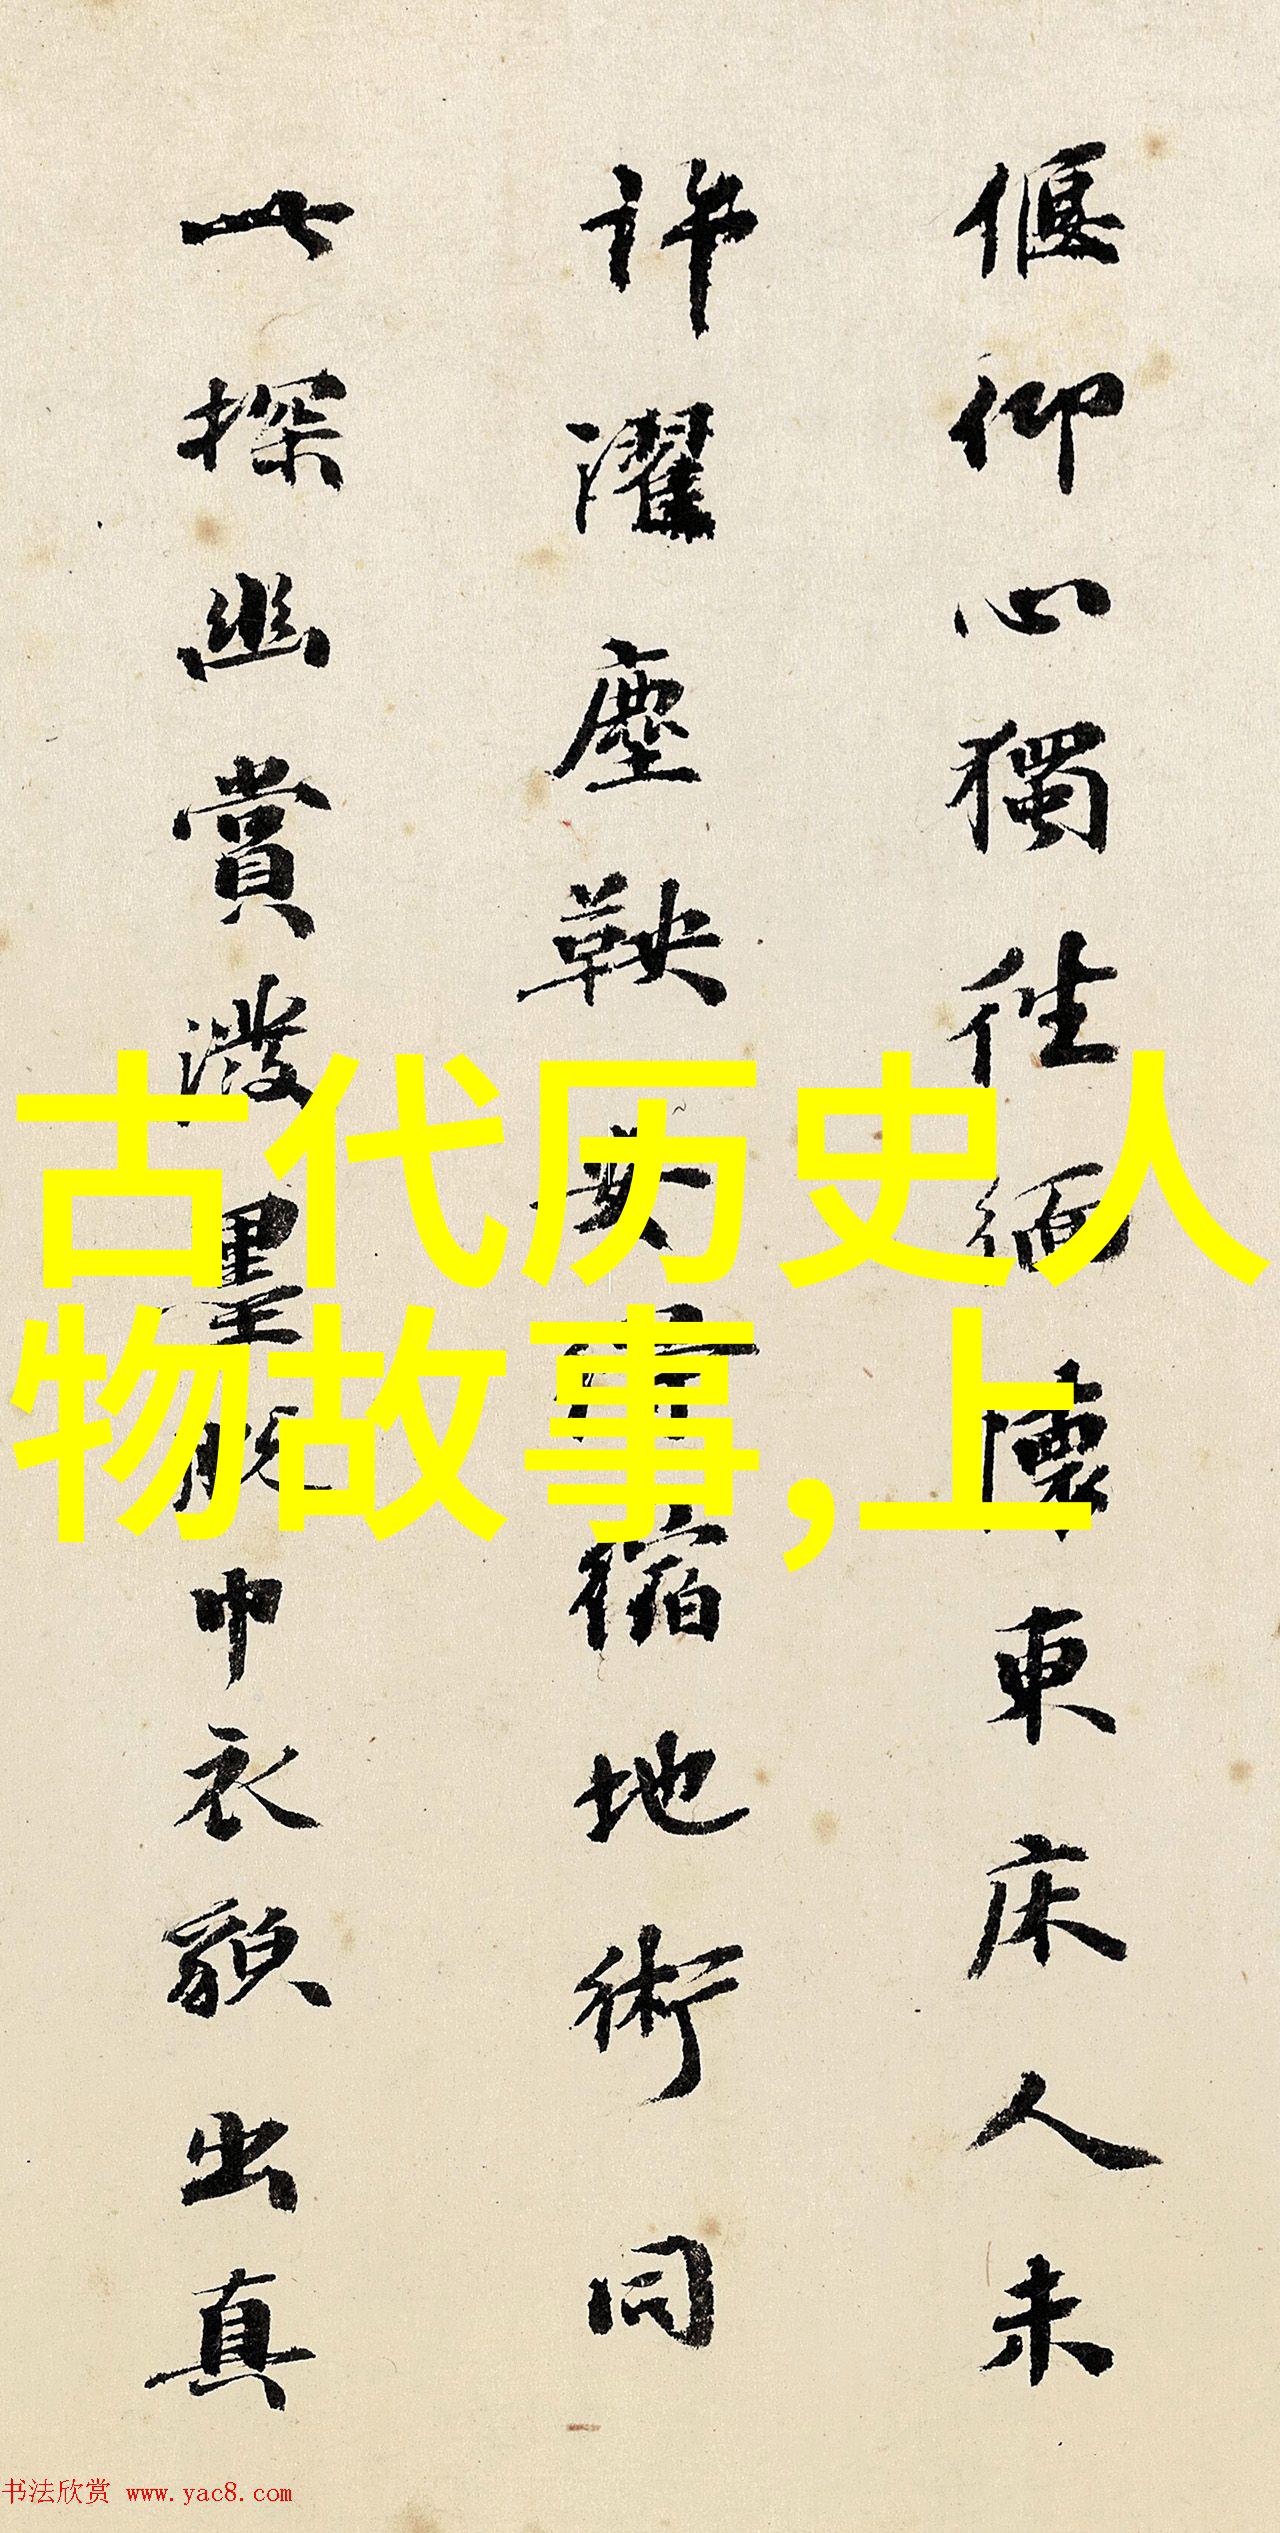 偃仰心獨往緬懷東床人未
許濯塵鞅安縮地術同
此探幽賞潑墨脱巾衣貌出真
古代历史人
物故事,上
书法欣赏 www.yac8.com